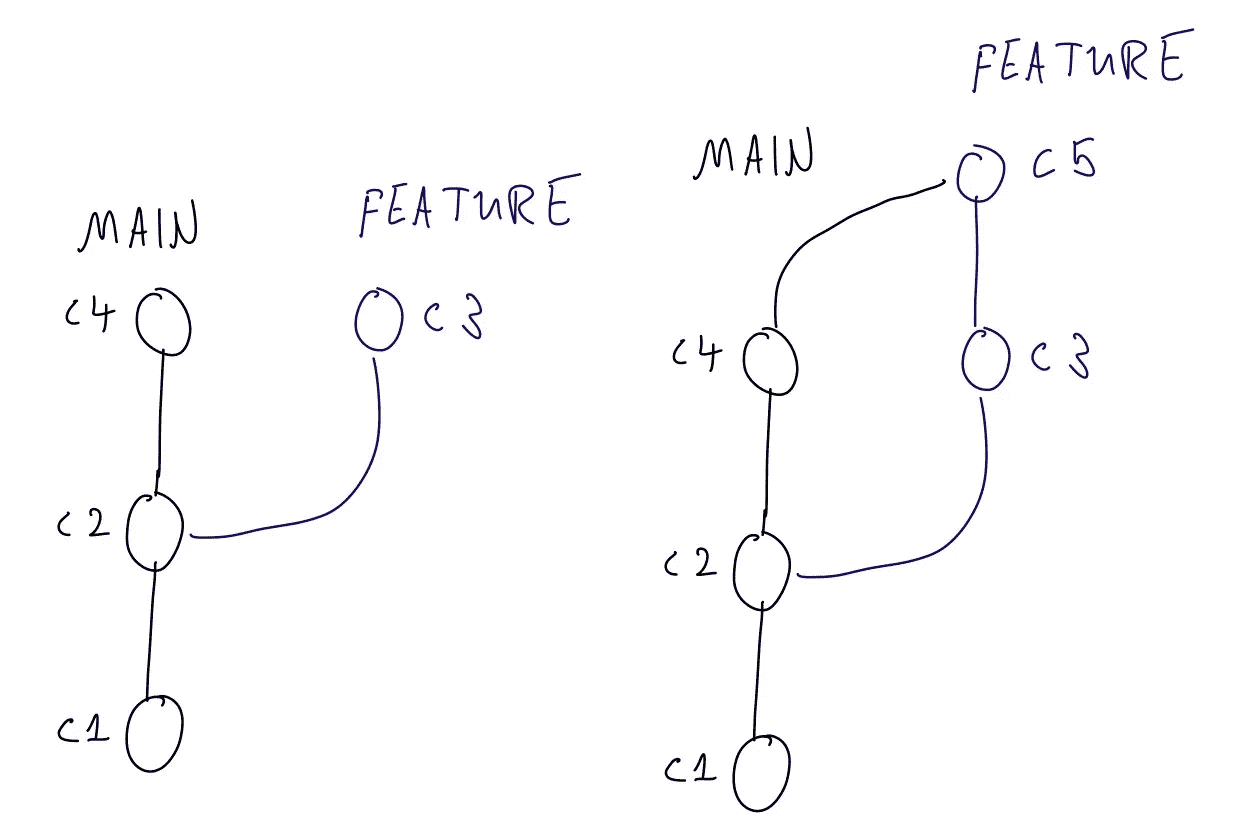 MAIN
FEATURE
C4
C3
C2
C1
FEATURE
MAIN
C5
C4
C3
C2
C1